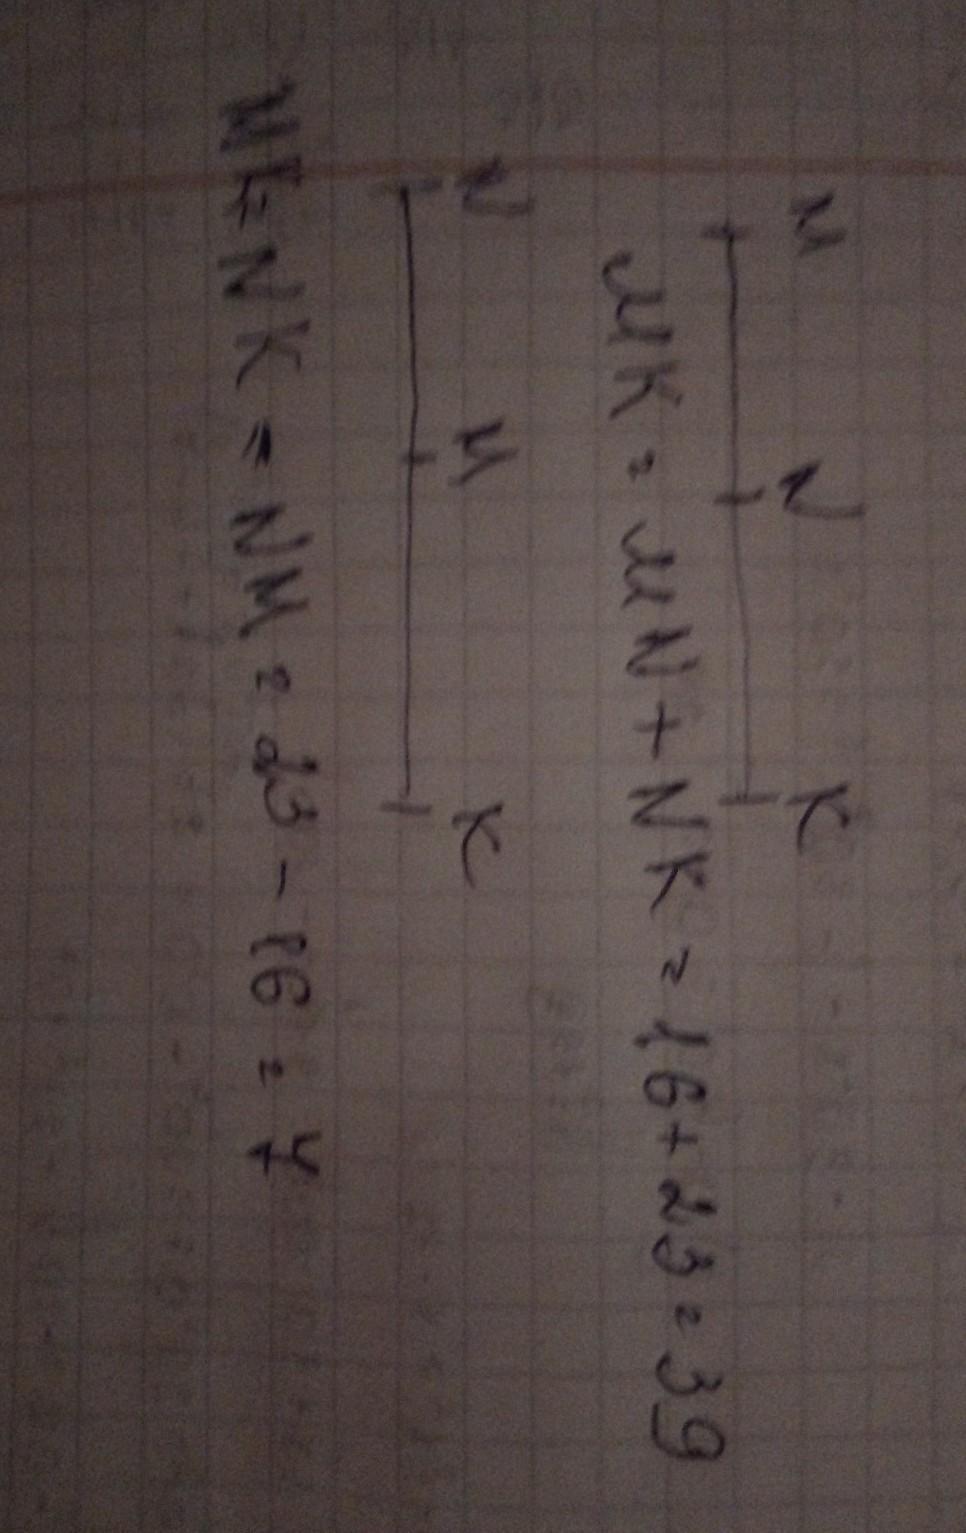 M N K
MK = MN + NK = 16 + 23 = 39
N M K
MK = NK = NM = 23 - 16 = 7